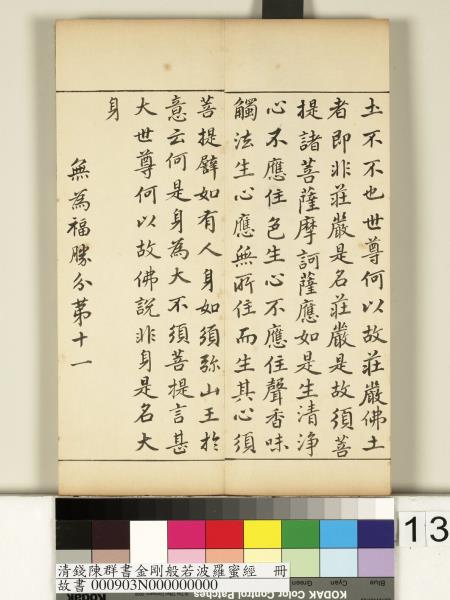 土不不也世尊何以故莊嚴佛土
者即非莊嚴是名莊嚴是故須菩
提諸菩薩摩訶薩應如是生清淨
心不應住色生心不應住聲香味
觸法生心應無所住而生其心須
菩提譬如有人身如須弥山王於
意云何是身為大不須菩提言甚
大世尊何以故佛說非身是名大
身
無為福勝分第十一
13
清錢陳群書金剛般若波羅蜜經 冊
故書 000903N000000000
Blue
Cyan
Green
KODAK Color Control Patches
KODAK